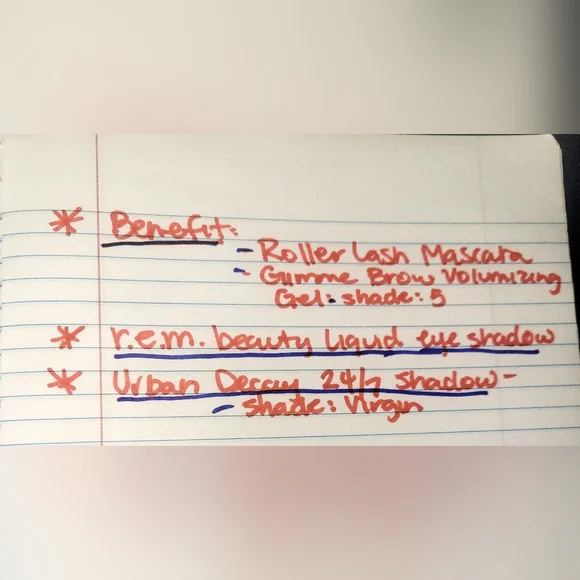 * Benefit:
- Roller Lash Mascara
- Gimme Brow Volumizing
Gel: shade: 5
* r.e.m. beauty liquid eye shadow
* Urban Decay 24/7 Shadow-
- shade: Virgin